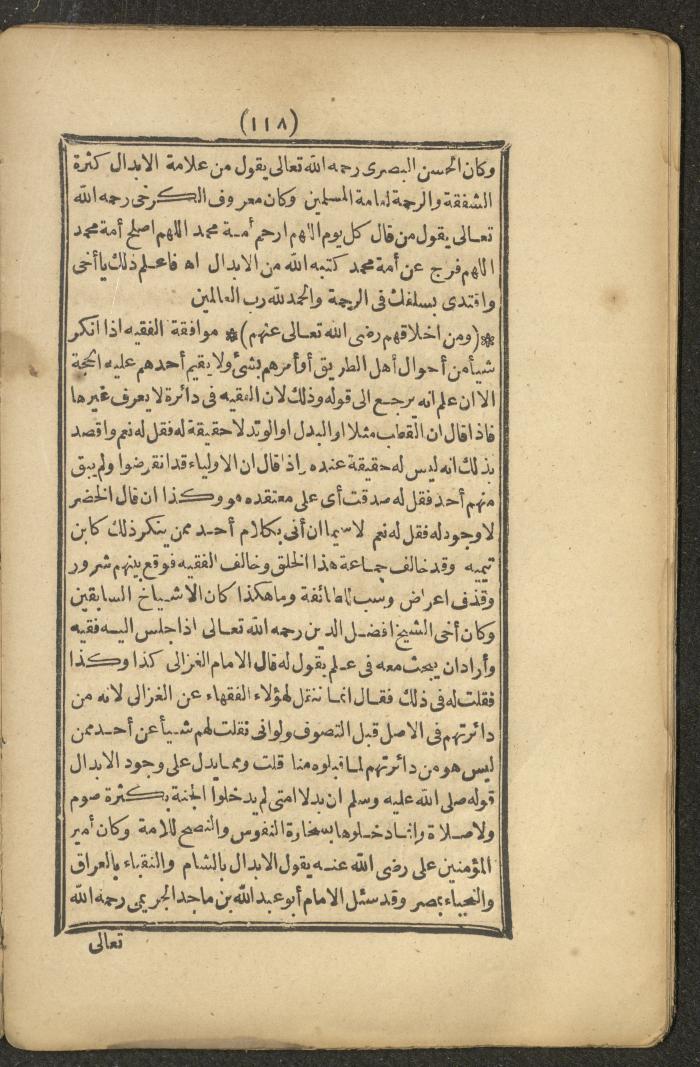 (١١٨)
وكان الحسن البصرى رحمه الله تعالى يقول من علامة الابدال كثرة
الشفقة والرحمة لعامة المسلمين وكان معروف الكرخى رحمه الله
تعالى يقول من قال كل يوم اللهم ارحم أمة محمد اللهم اصلح أمة محمد
اللهم فرج عن أمة محمد كتبه الله من الابدال اه فاعلم ذلك يا أخى
واقتدى بسلفك فى الرحمة والحمد لله رب العالمين
*(ومن اخلاقهم رضى الله تعالى عنهم)* موافقة الفقيه اذا انكر
شيأ من أحوال أهل الطريق أو أمرهم بشئ ولا يقيم أحدهم عليه الحجة
الا ان علم انه يرجع الى قوله وذلك لان الفقيه فى دائرة لا يعرف غيرها
فاذا قال ان القطب مثلا او البدل او الوتد لا حقيقة له فقل له نعم واقصد
بذلك انه ليس له حقيقة عنده واذا قال ان الاولياء قد انقرضوا ولم يبق
منهم أحد فقل له صدقت أى على معتقده هو وكذا ان قال الخضر
لا وجود له فقل له نعم لا سيما ان أنى بكلام أحد ممن ينكر ذلك كابن
تيميه وقد خالف جماعة هذا الخلق وخالف الفقيه فوقع بينهم شرور
وقذف اعراض وسب للطائفة وما هكذا كان الاشياخ السابقين
وكان أخى الشيخ افضل الدين رحمه الله تعالى اذا جلس اليه فقيه
وأراد ان يبحث معه فى علم يقول له قال الامام الغزالى كذا وكذا
فقلت له فى ذلك فقال انما ننقل لهؤلاء الفقهاء عن الغزالى لانه من
دائرتهم فى الاصل قبل التصوف ولوانى نقلت لهم شيأ عن أحد ممن
ليس هو من دائرتهم لما قبلوه منا قلت ومما يدل على وجود الابدال
قوله صلى الله عليه وسلم ان بدلا امتى لم يدخلوا الجنة بكثرة صوم
ولا صلاة وانما دخلوها بسخاوة النفوس والنصح للامة وكان أمير
المؤمنين على رضى الله عنه يقول الابدال بالشام والنقباء بالعراق
والنجباء بمصر وقد سئل الامام أبو عبد الله بن ماجد الجريمى رحمه الله
تعالى